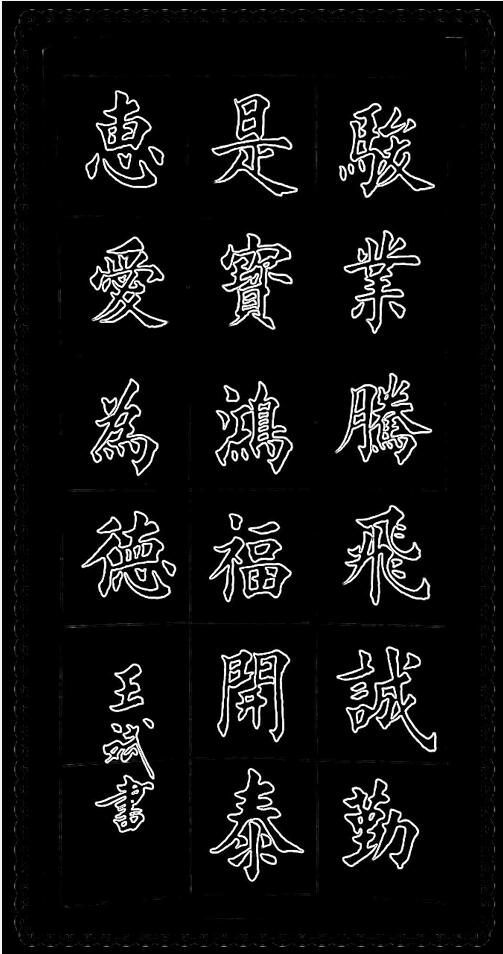 駿業騰飛誠勤
是寶鴻福開泰
惠愛為德
王斌書